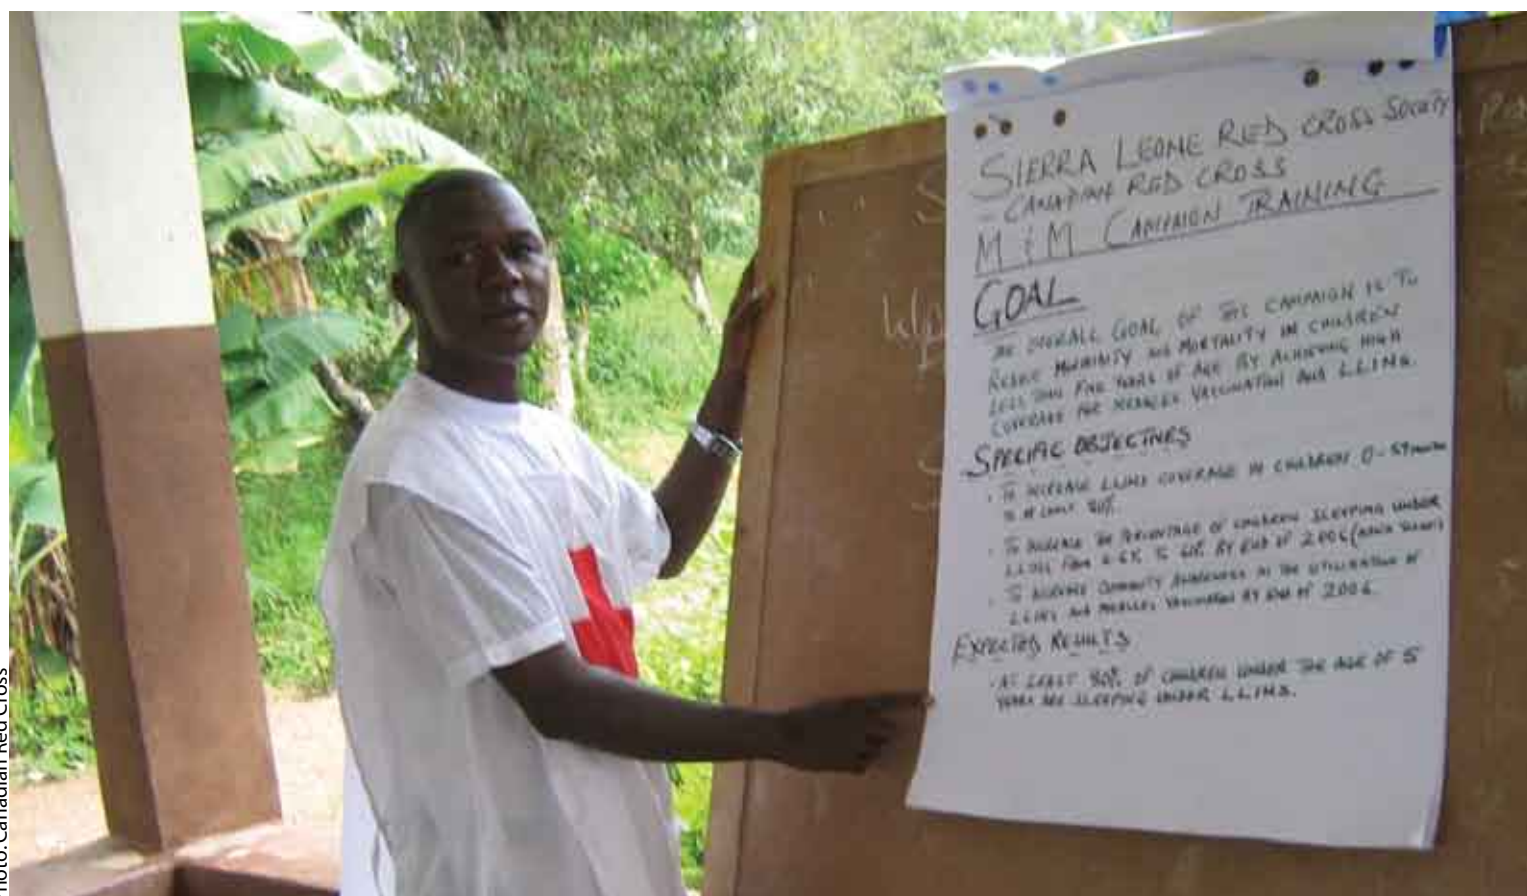 SIERRA LEONE RED CROSS SOCIETY
- CANADIAN RED CROSS
M & M CAMPAIGN TRAINING
GOAL
THE OVERALL GOAL OF THE CAMPAIGN IS TO
REDUCE MORBIDITY AND MORTALITY IN CHILDREN
LESS THAN FIVE YEARS OF AGE BY ACHIEVING HIGH
COVERAGE FOR MEASLES VACCINATION AND LLINS.
SPECIFIC OBJECTIVES
. TO INCREASE LLINS COVERAGE IN CHILDREN 0-59 months
TO AT LEAST 80%.
. TO INCREASE THE PERCENTAGE OF CHILDREN SLEEPING UNDER
LLINS FROM BY END OF 2006
. TO INCREASE COMMUNITY AWARENESS IN THE UTILISATION OF
LLINS AND MEASLES VACCINATION BY END OF 2006.
EXPECTED RESULTS
. AT LEAST 80% OF CHILDREN UNDER THE AGE OF 5
YEARS ARE SLEEPING UNDER LLINS.
Photo: Canadian Red Cross